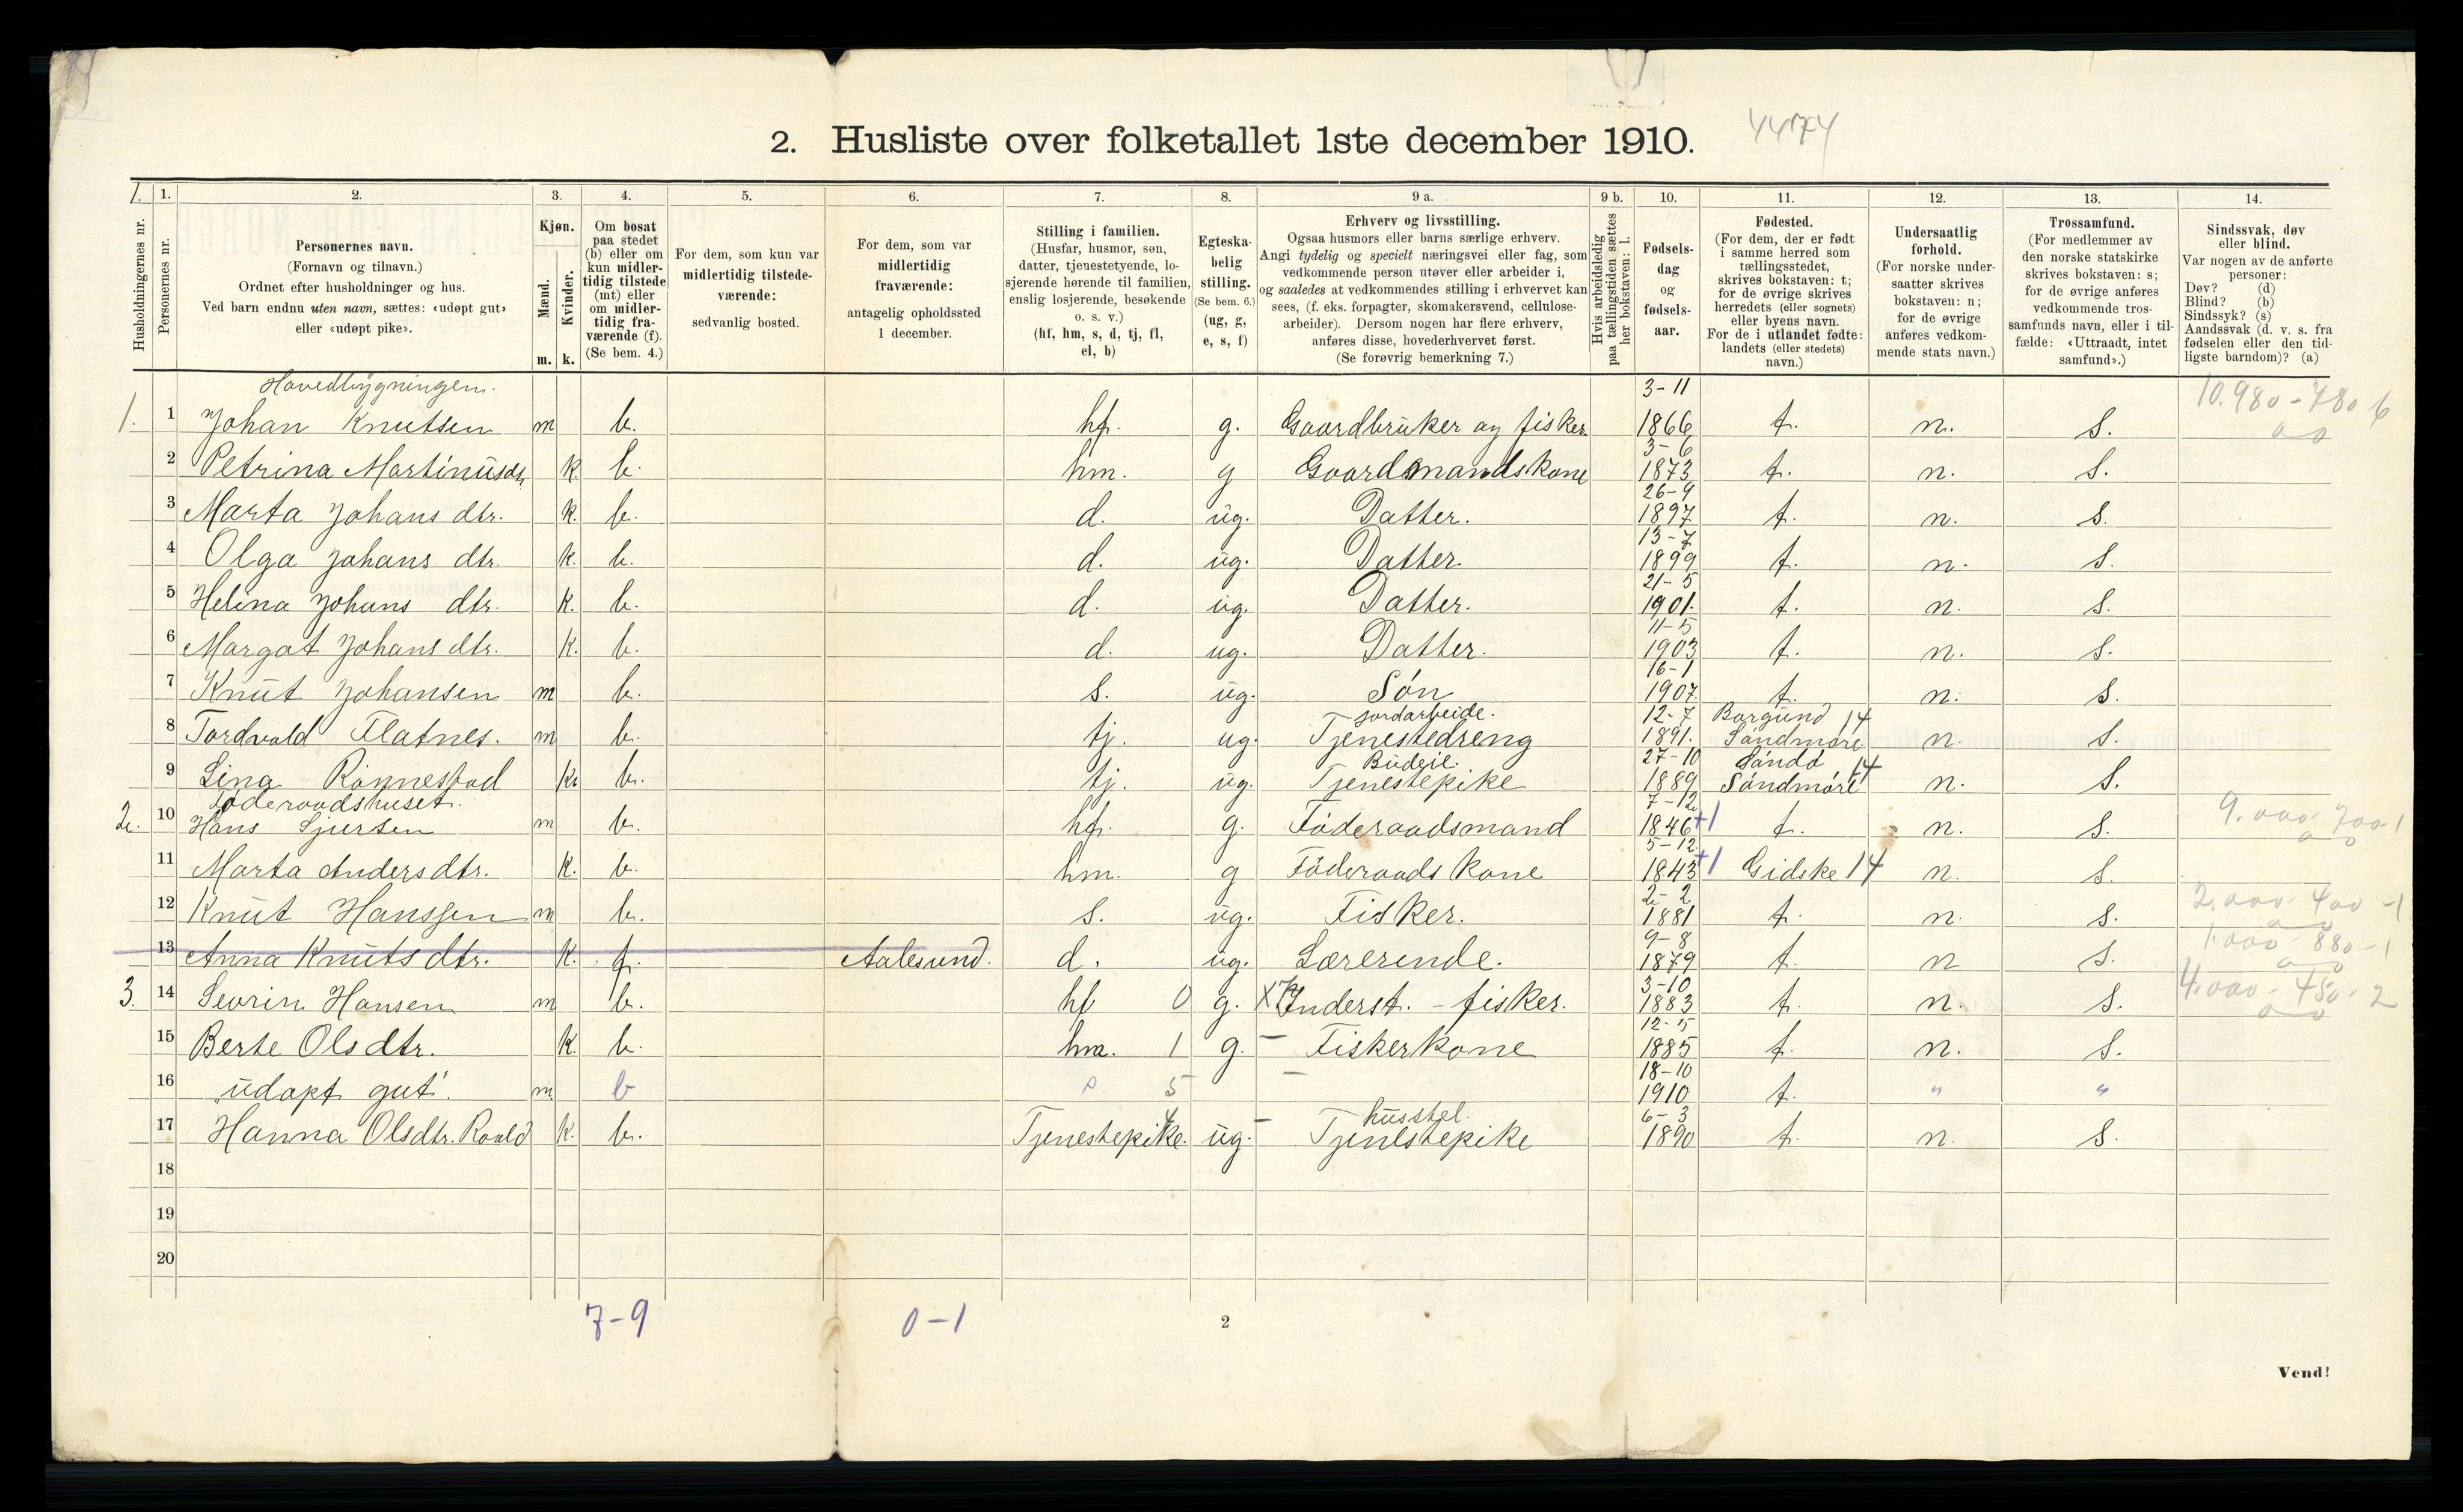 2. Husliste over folketallet 1ste december 1910.
1. 1. 2. 3. 4. 5. 6. 7. 8. 9 a. 9 b. 10. 11. 12. 13. 14.
Husholdningernes nr.
Personernes nr.
Personernes navn.
(Fornavn og tilnavn.)
Ordnet efter husholdninger og hus.
Ved barn endnu uten navn, sættes: «udøpt gut»
eller «udøpt pike».
Kjøn.
Mænd.
Kvinder.
m. k.
Om bosat
paa stedet
(b) eller om
kun midler-
tidig tilstede
(mt) eller
om midler-
tidig fra-
værende (f).
(Se bem. 4.)
For dem, som kun var
midlertidig tilstede-
værende:
sedvanlig bosted.
For dem, som var
midlertidig
fraværende:
antagelig opholdssted
1 december.
Stilling i familien.
(Husfar, husmor, søn,
datter, tjenestetyende, lo-
sjerende hørende til familien,
enslig losjerende, besøkende
o. s. v.)
(hf, hm, s, d, tj, fl,
el, b)
Egteska-
belig
stilling.
(Se bem. 6.)
(ug, g,
e, s, f)
Erhverv og livsstilling.
Ogsaa husmors eller barns særlige erhverv.
Angi tydelig og specielt næringsvei eller fag, som
vedkommende person utøver eller arbeider i,
og saaledes at vedkommendes stilling i erhvervet kan
sees, (f. eks. forpagter, skomakersvend, cellulose-
arbeider). Dersom nogen har flere erhverv,
anføres disse, hovederhvervet først.
(Se forøvrig bemerkning 7.)
Hvis arbeidsledig
paa tællingstiden sættes
her bokstaven: l.
Fødsels-
dag
og
fødsels-
aar.
Fødested.
(For dem, der er født
i samme herred som
tællingsstedet,
skrives bokstaven: t;
for de øvrige skrives
herredets (eller sognets)
eller byens navn.
For de i utlandet fødte:
landets (eller stedets)
navn.)
Undersaatlig
forhold.
(For norske under-
saatter skrives
bokstaven: n;
for de øvrige
anføres vedkom-
mende stats navn.)
Trossamfund.
(For medlemmer av
den norske statskirke
skrives bokstaven: s;
for de øvrige anføres
vedkommende tros-
samfunds navn, eller i til-
fælde: «Uttraadt, intet
samfund».)
Sindssvak, døv
eller blind.
Var nogen av de anførte
personer:
Døv? (d)
Blind? (b)
Sindssyk? (s)
Aandssvak (d. v. s. fra
fødselen eller den tid-
ligste barndom)? (a)
Hovedbygningen. 3-11
1. 1 Johan Knutsen m b. hf. g. Gaardbruker og fisker 1866 t. n. S. 10.980-780 6
2 Petrina Martinusdtr k. b. hm. g Gaardsmandskone 3-6 1873 t. n. S.
3 Marta Johans dtr. k. b. d. ug. Datter. 26-9 1897 t. n. S.
4 Olga Johans dtr. k. b. d. ug. Datter 13-7 1899 t. n. S.
5 Helina Johans dtr. k. b. d. ug. Datter. 21-5 1901. t. n. S.
6 Margot Johans dtr. k. b. d. ug. Datter. 11-5 1903 t. n. S.
7 Knut Johansen m b. s. ug. Søn 16-1 1907. t. n. S.
jordarbeide. 12-7 Borgund 14
8 Tordvald Flatnes. m b. tj. ug. Tjenestedreng 1891. Søndmøre n. S.
Budeie. 27-10 Sandø 14
9 Lina Rønnestad k. b. tj. ug. Tjenestepike 1889 Søndmøre n. S.
Føderaadshuset. 7-12
2. 10 Hans Sjursen m b. hf. g. Føderaadsmand 1846 +1 t. n. S. 9.000 700-1
11 Marta Andersdtr. k. b. hm. g Føderaads kone 5-12 1843 +1 Gidske 14 n. S.
12 Knut Hanssen m b. s. ug. Fisker. 2-2 1881 t. n. S. 2.000 400-1
13 Anna Knutsdtr. k. f. Aalesund. d. ug. Lærerinde. 9-8 1879 t. n S. 1.000 880-1
3. 14 Sevrin Hansen m b. hf 0 g. X Inderst. - fisker. 3-10 1883 t. n. S. 4.000-450-2
15 Berte Olsdtr. k. b. hm. 1 g. - Fiskerkone 12-5 1885 t. n. S.
16 "udøpt gut". m b s 5 - 18-10 1910 t. " "
husstel. 6-3
17 Hanna Olsdtr. Roald k. b. Tjenestepike. ug. - Tjenestepike 1890 t. n. S.
18
19
20
7-9 0-1
2
Vend!